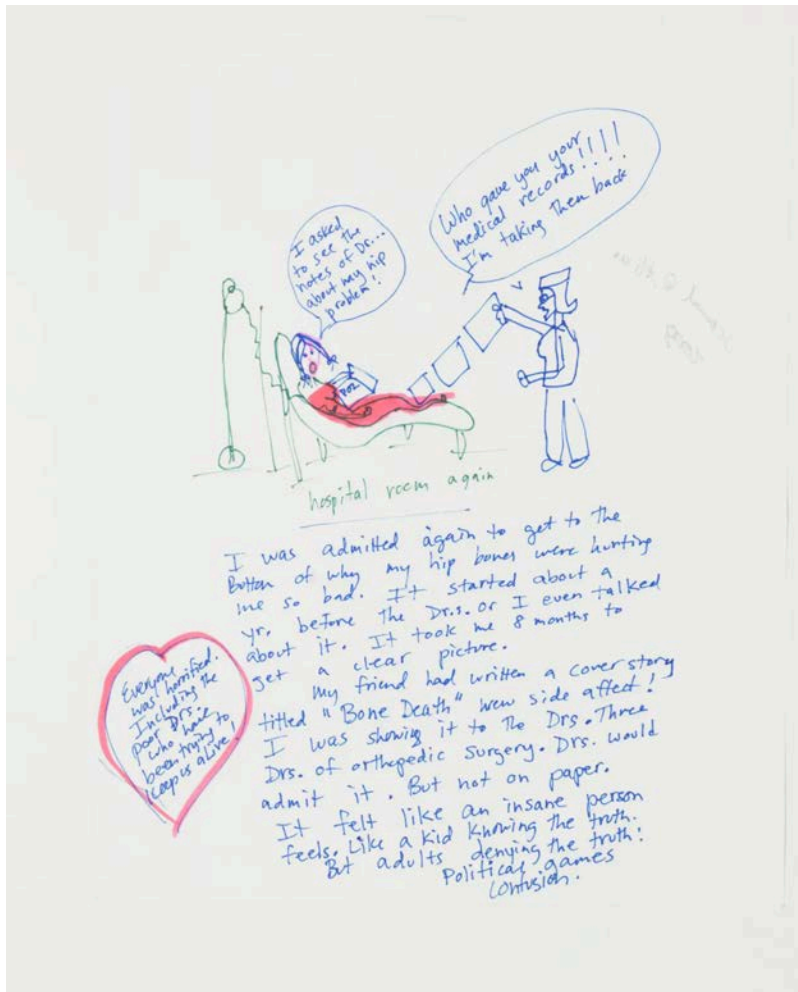 Who gave you your
medical records!!!!
I'm taking them back
I asked
to see the
notes of Dr...
about my hip
problem!
hospital room again
I was admitted again to get to the
Botton of why my hip bones were hurting
me so bad. It started about a
yr. before the Dr.s. or I even talked
about it. It took me 8 months to
get a clear picture.
My friend had written a cover story
titled "Bone Death" new side affect!
I was showing it to the Drs. Three
Drs. of orthopedic surgery. Drs. would
admit it. But not on paper.
It felt like an insane person
feels. Like a kid knowing the truth.
But adults denying the truth!
Political games
confusion.
Everyone
was horrified.
Including the
poor Drs.
who have
been trying to
keep us alive!